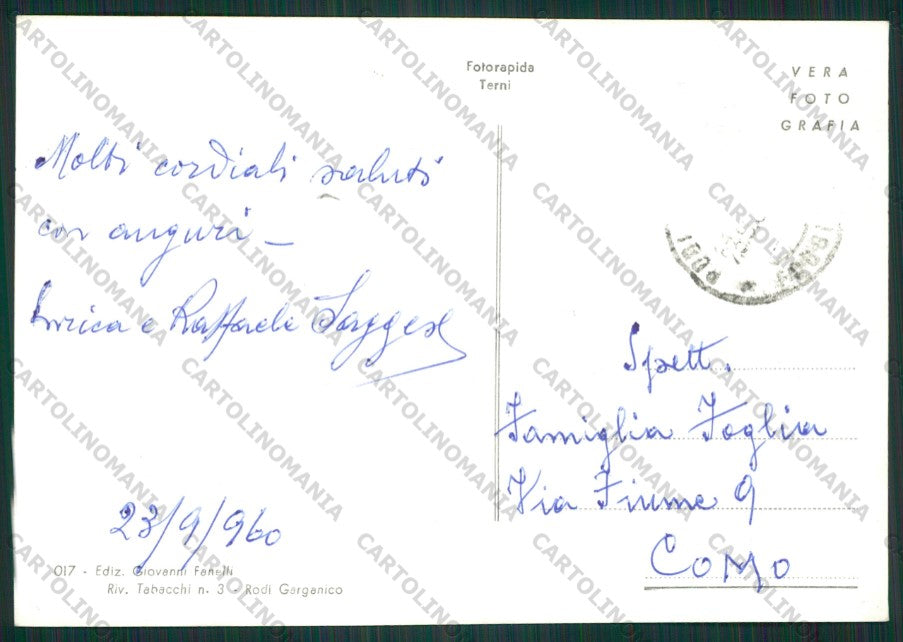 Fotorapida
Terni
VERA
FOTO
GRAFIA
Molti cordiali saluti
con auguri —
Enrica e Raffaele Saggese
Spett.
Famiglia Foglia
Via Fiume 9
COMO
23/9/960
017 - Ediz. Giovanni Fanelli
Riv. Tabacchi n. 3 - Rodi Garganico
CARTOLINOMANIA